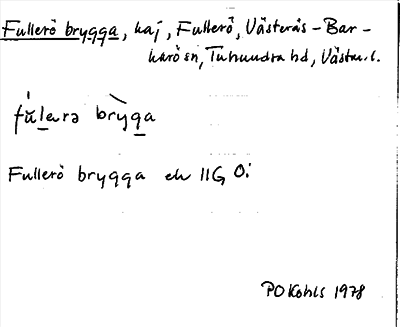 Fullerö brygga, kaj, Fullerö, Västerås-Bar-
karö sn, Tuhundra hd, Västm.l.
fu̇lerə brỳga
Fullerö brygga ek 11G 0i
PO Kohls 1978